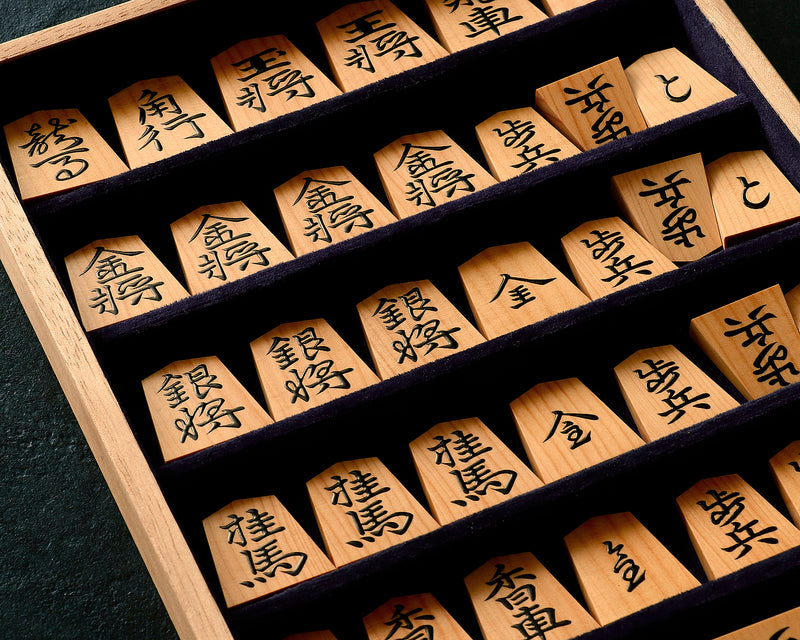 龍馬
角行
玉将
王将
飛車
金将
金将
金将
金将
歩兵
歩兵
と
銀将
銀将
銀将
全
歩兵
歩兵
と
桂馬
桂馬
桂馬
全
歩兵
歩兵
香車
香車
全
歩兵